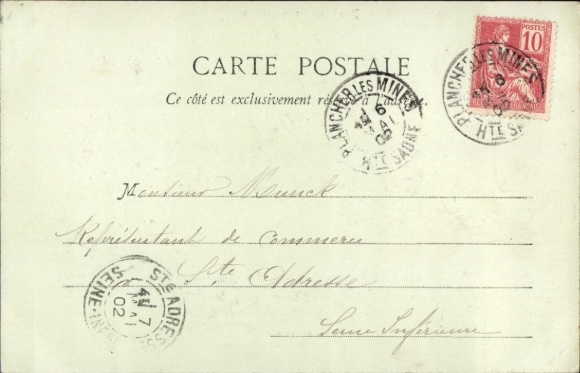 POSTES
10
CARTE POSTALE
Ce côté est exclusivement réservé à l'adresse.
PLANCHER LES MINES
6
MAI
02
HTE SAÔNE
PLANCHER LES MINES
6
HTE SAÔNE
Monsieur Munck
Représentant de commerce
à Ste Adresse
Seine Inférieure
STE ADRESSE
7
MAI
02
SEINE-INFRE